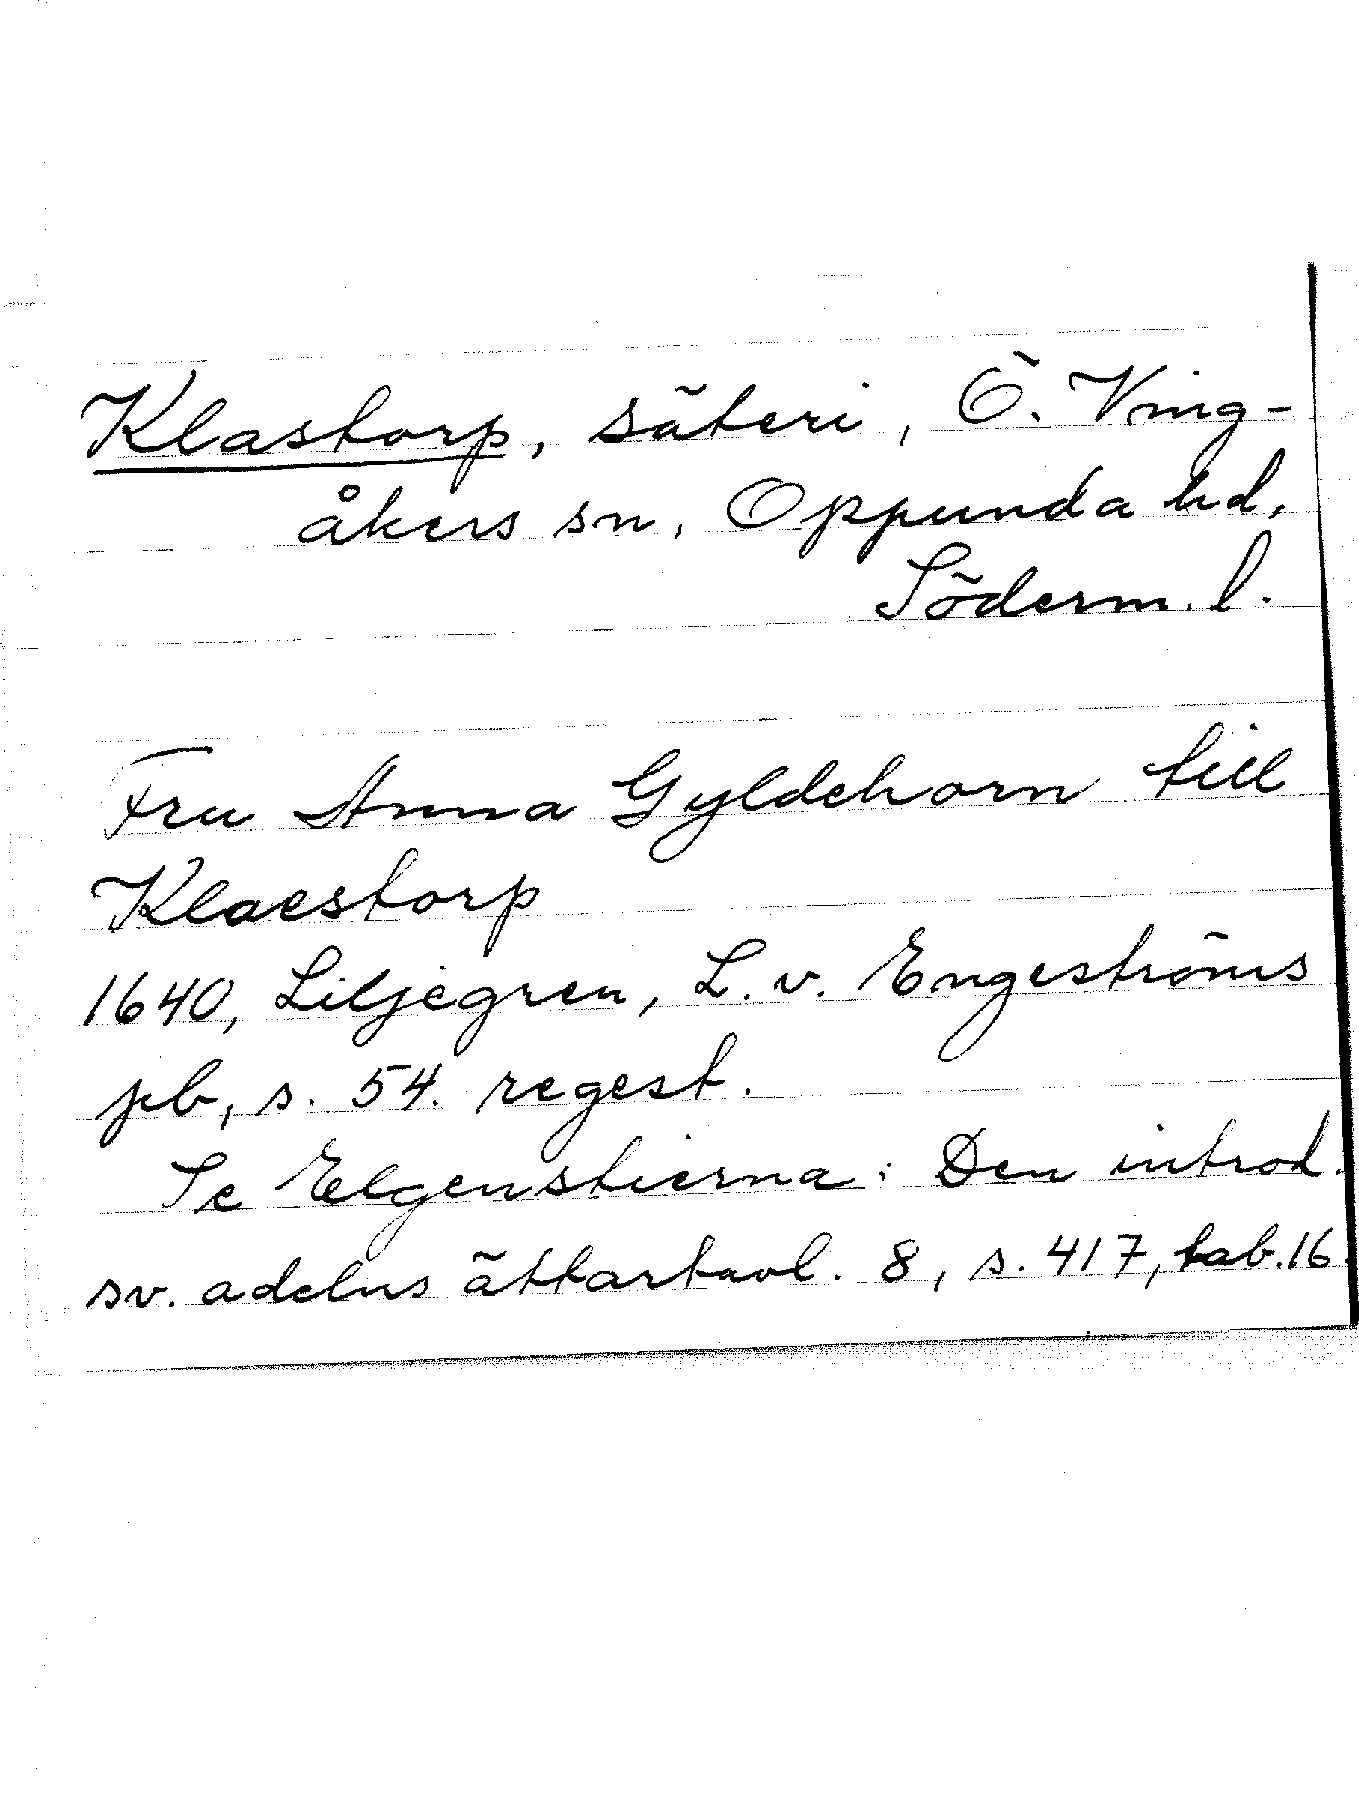 Klastorp, säteri, Ö. Ving-
åkers sn, Oppunda hd,
Söderm. l.
Fru Anna Gyldehorn till
Klaestorp
1640, Liljegren, L. v. Engeströms
pb, s. 54. regest.
Se Elgenstierna: Den introd.
sv. adelns ättartavl. 8, s. 417, tab. 16.